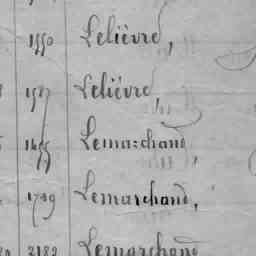 1550 Lelièvre,
1587 Lelièvre,
1455 Lemarchand,
1789 Lemarchand,
2182 Lemarchand